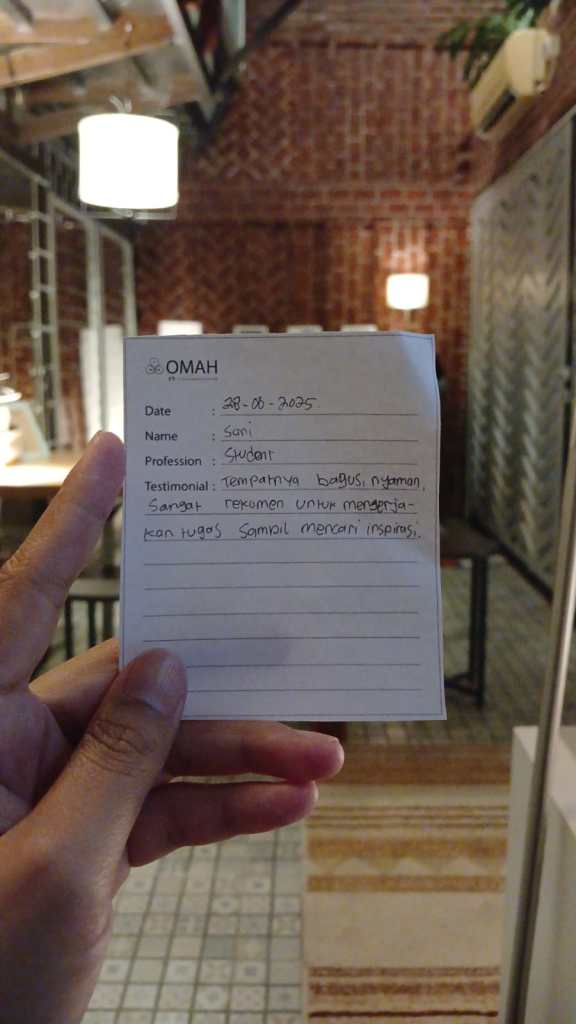 OMAH
Date : 28-08-2025.
Name : Sani
Profession : Student
Testimonial : Tempatnya bagus, nyaman,
Sangat rekomen untuk mengerja-
kan tugas sambil mencari inspirasi.